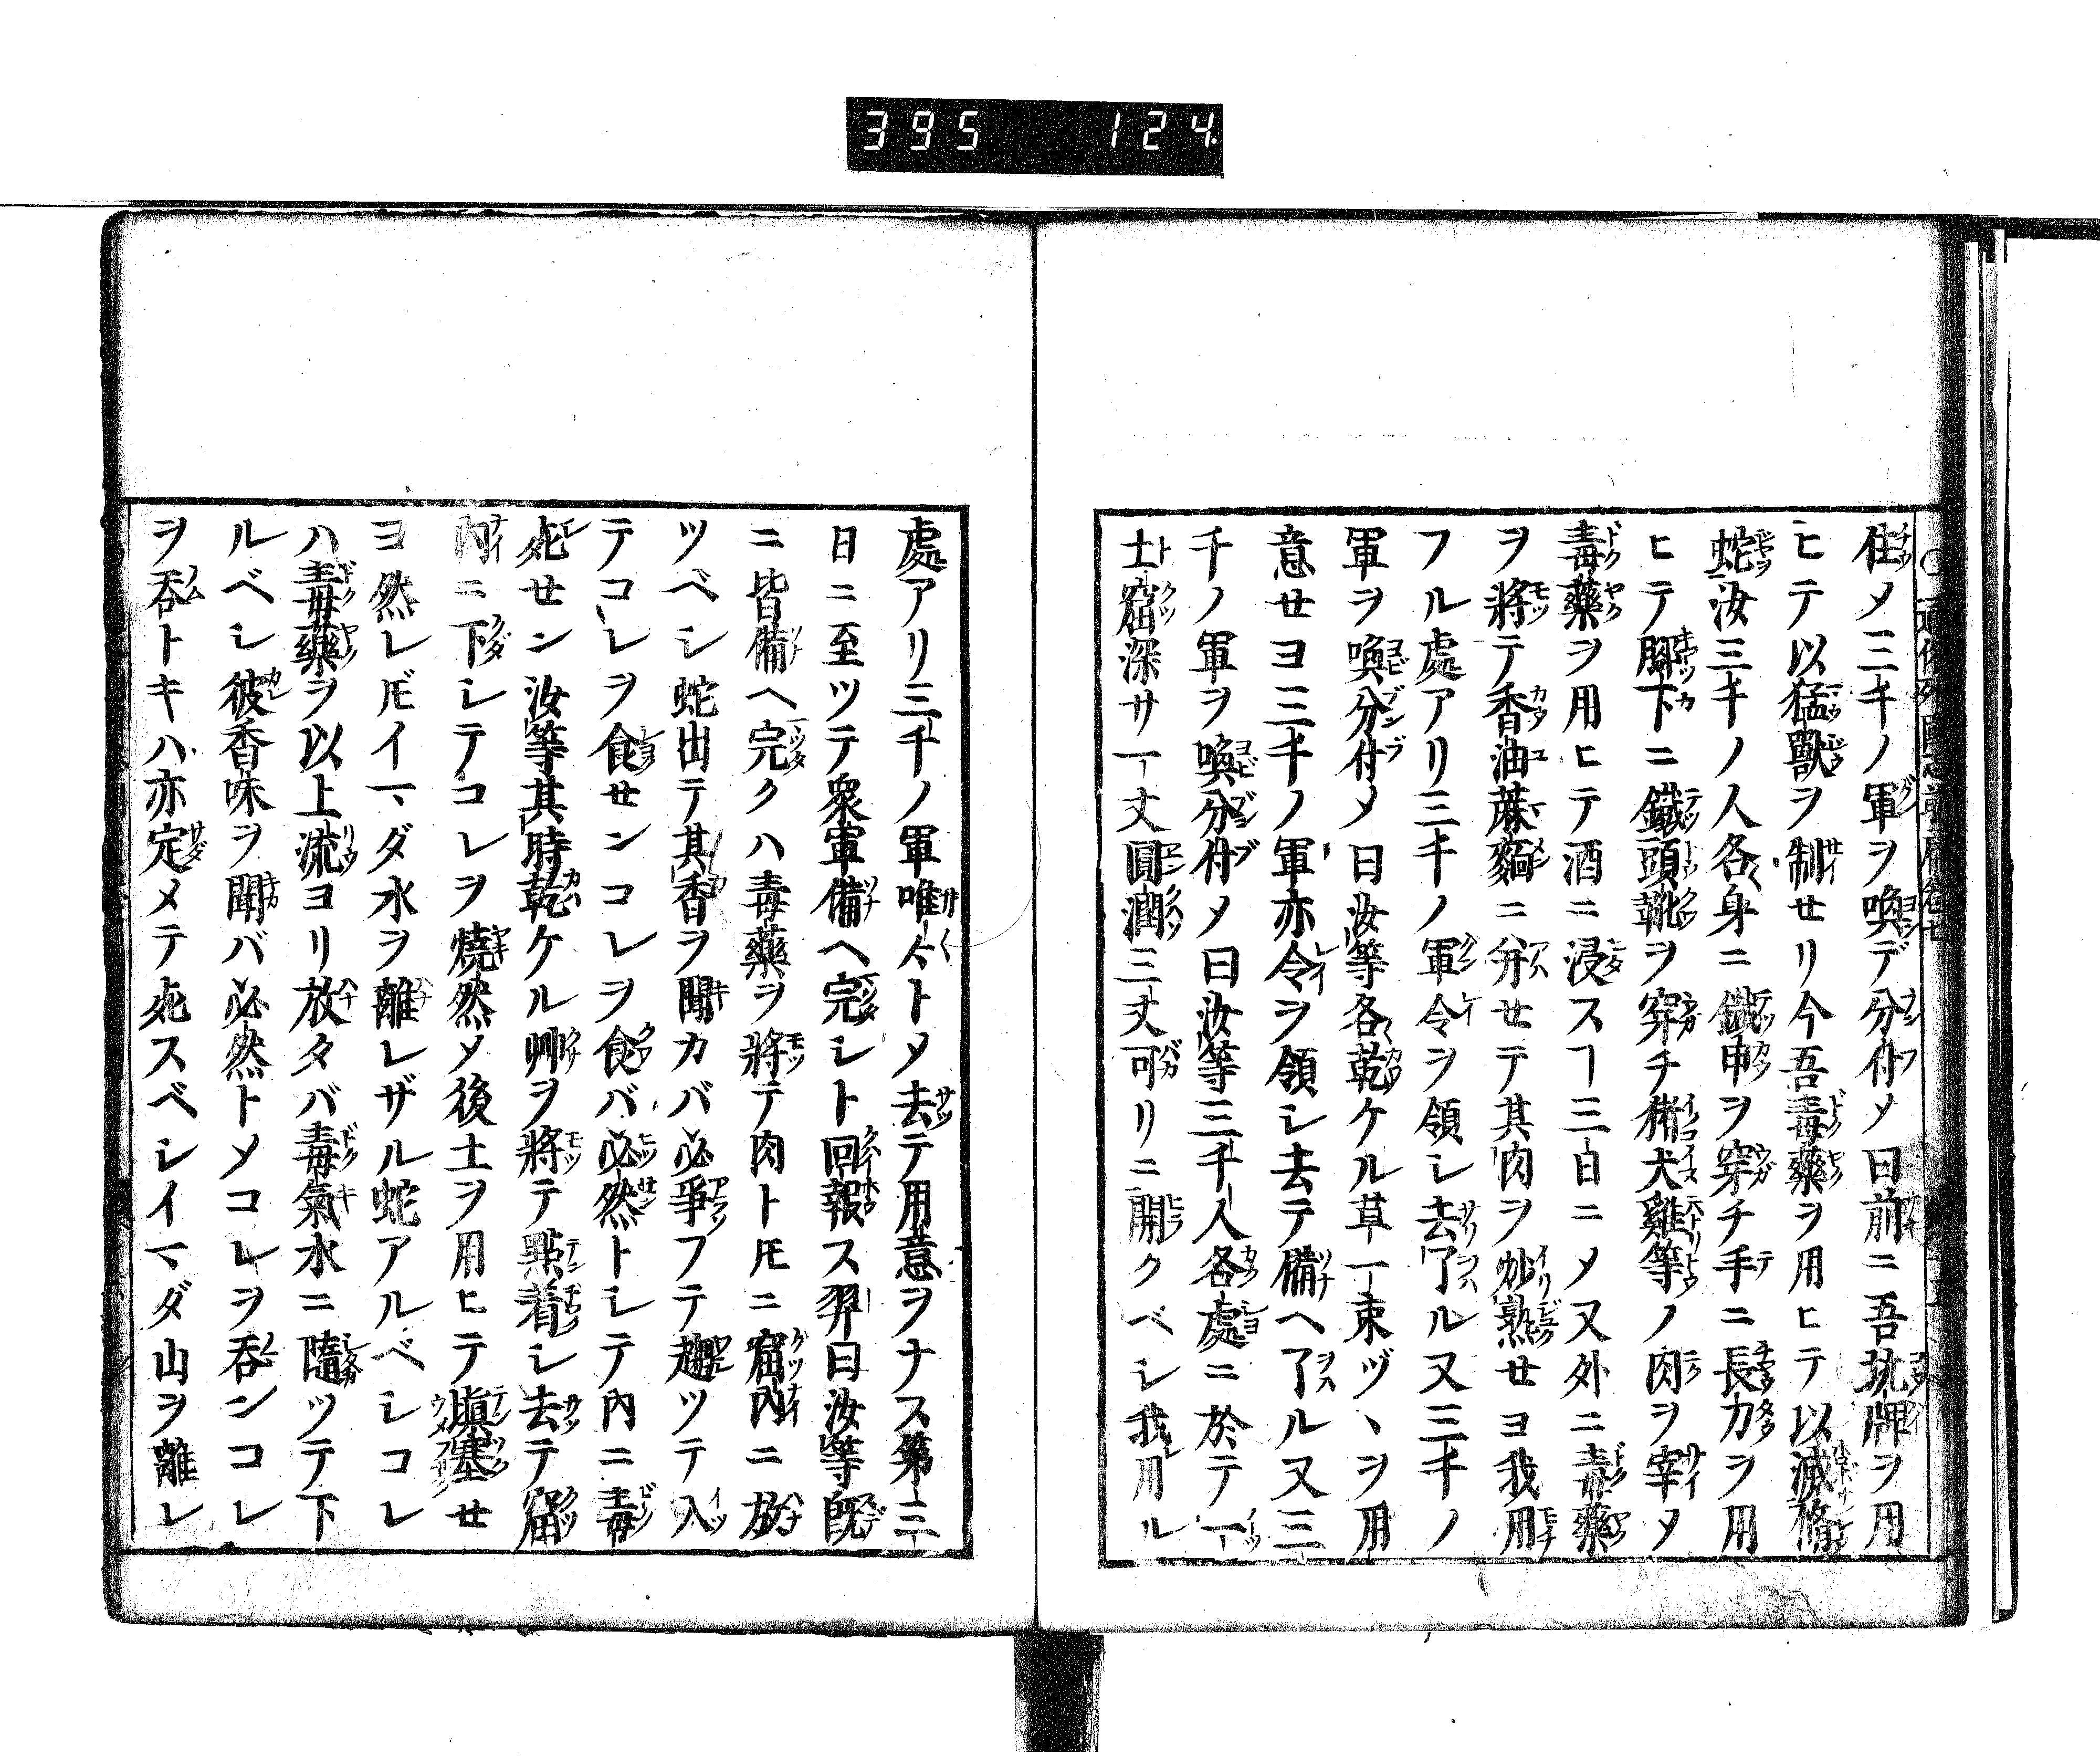 395 124
住メ三千ノ軍ヲ喚デ分付メ曰前ニ吾坑牌ヲ用
ヒテ以猛獸ヲ制セリ今吾毒藥ヲ用ヒテ以滅脩
蛇汝三千ノ人各身ニ鐵甲ヲ穿チ手ニ長力ヲ用
ヒテ脚下ニ鐵頭靴ヲ穿チ猪犬雞等ノ肉ヲ宰メ
毒藥ヲ用ヒテ酒ニ浸スヿ三日ニメ又外ニ毒藥
ヲ將テ香油蔴麵ニ分セテ其肉ヲ炒熟セヨ我用
フル處アリ三千ノ軍令ヲ領シ去了ル又三千ノ
軍ヲ喚分付メ曰汝等各乾ケル草一束ヅヽヲ用
意セヨ三千ノ軍亦令ヲ領シ去テ備ヘ了ル又三
千ノ軍ヲ喚分付メ曰汝等三千人各處ニ於テ一
土窟深サ一丈圓濶三丈可リニ開クベシ我用ル
處アリ三千ノ軍唯々トメ去テ用意ヲナス第三
日ニ至ツテ衆軍備ヘ完シト回報ス羿曰汝等既
ニ皆備ヘ完クハ毒藥ヲ將テ肉ト𪜈ニ窟內ニ放
ツベシ蛇出テ其香ヲ聞カバ必爭フテ趨ツテ入
テコレヲ食センコレヲ食バ必然トシテ內ニ毒
死セン汝等其時乾ケル艸ヲ將テ點着シ去テ窟
內ニ下シテコレヲ燒然メ後土ヲ用ヒテ塡塞セ
ヨ然レ𪜈イマダ水ヲ離レザル蛇アルベシコレ
ハ毒藥ヲ以上流ヨリ放タバ毒氣水ニ隨ツテ下
ルベシ彼香味ヲ聞バ必然トメコレヲ呑ンコレ
ヲ呑トキハ亦定メテ死スベシイマダ山ヲ離レ